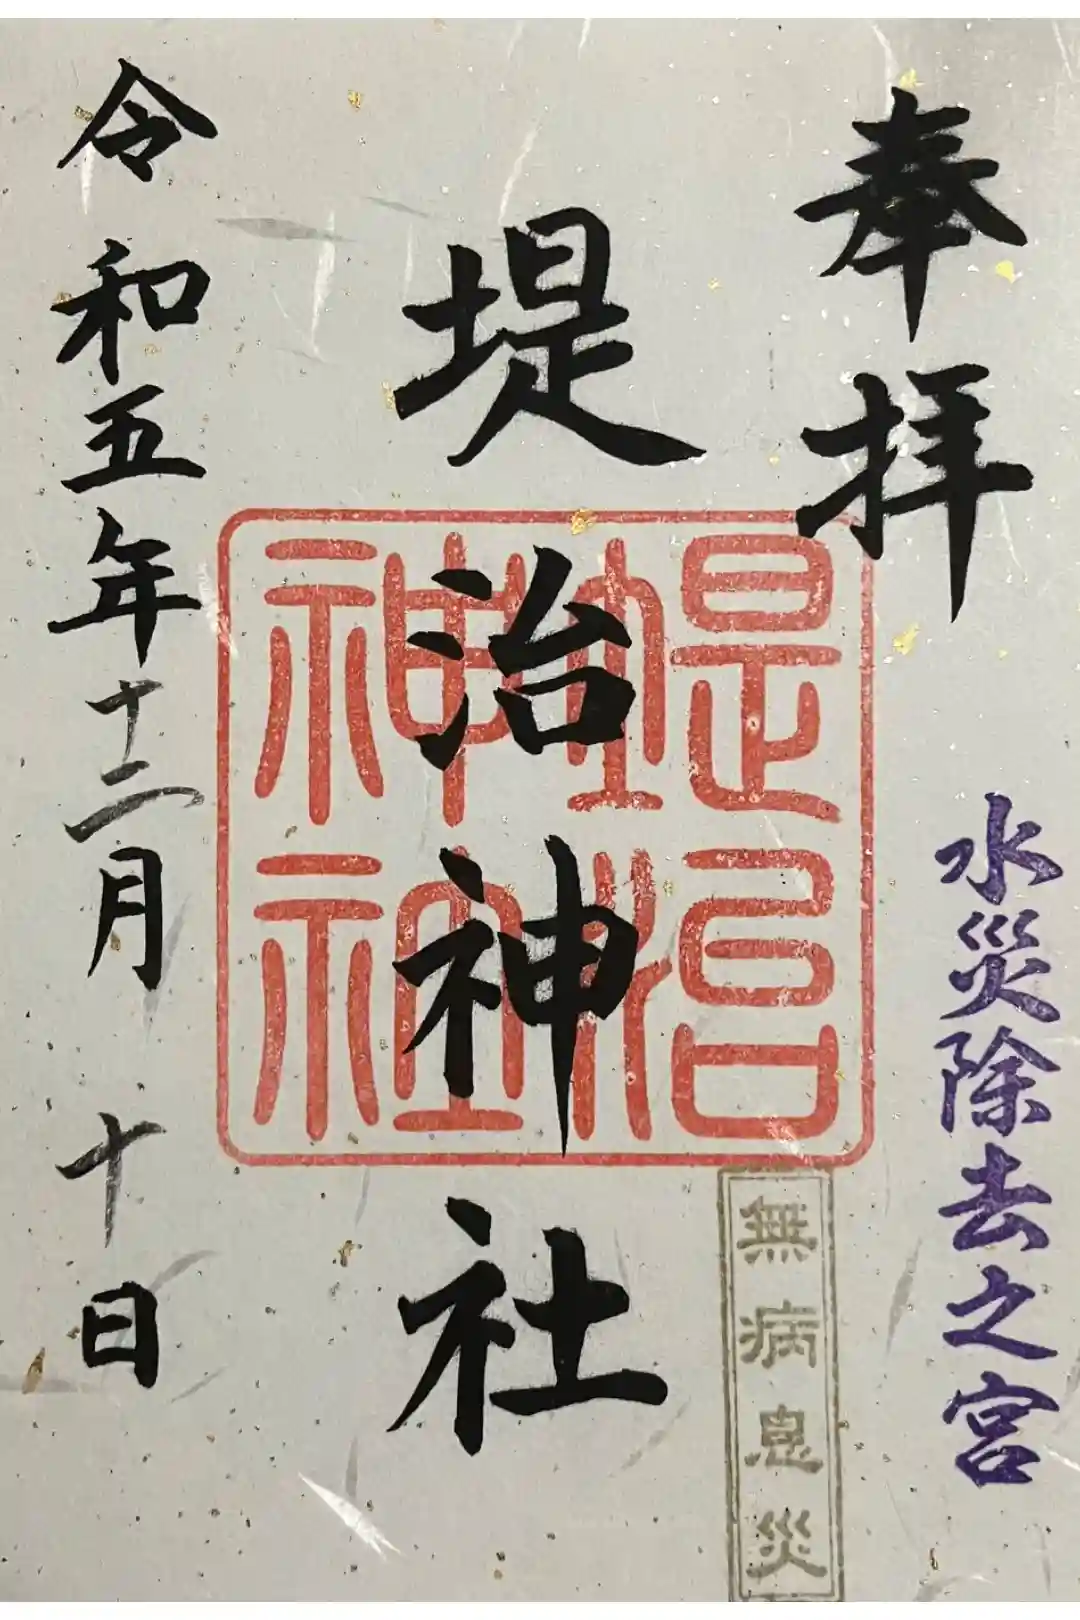 奉拝
水災除去之宮
無病息災
堤治神社
堤治
神社
令和五年十二月十日